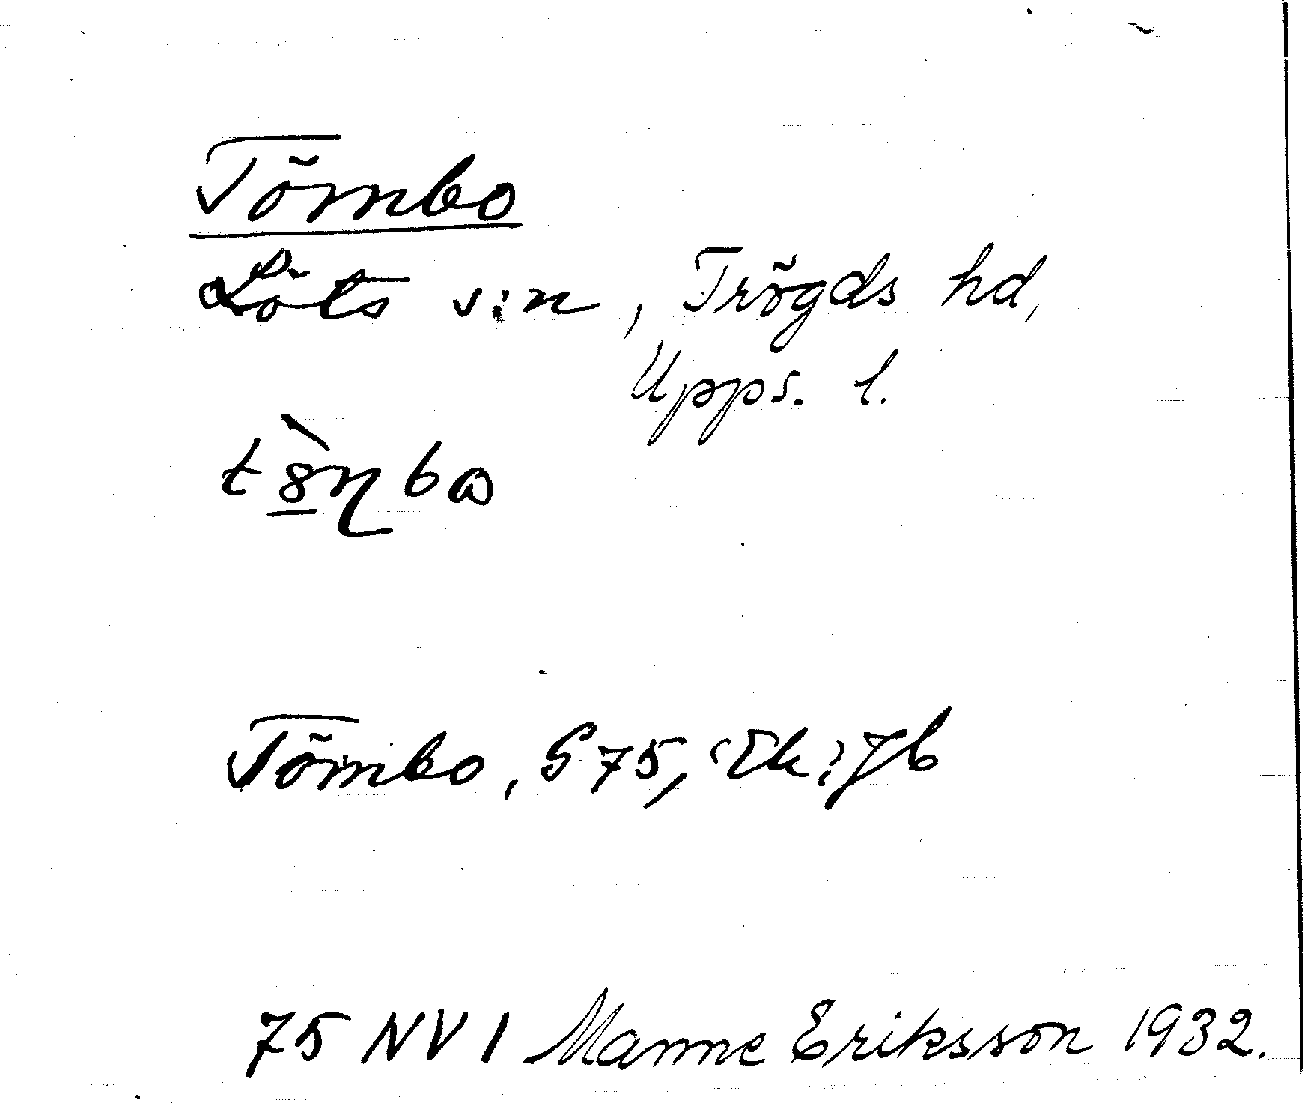 Tömbo
Löts s:n, Trögds hd,
Upps. l.
Tömbo, G 75, Ek, Jb
75 NV 1 Manne Eriksson 1932.